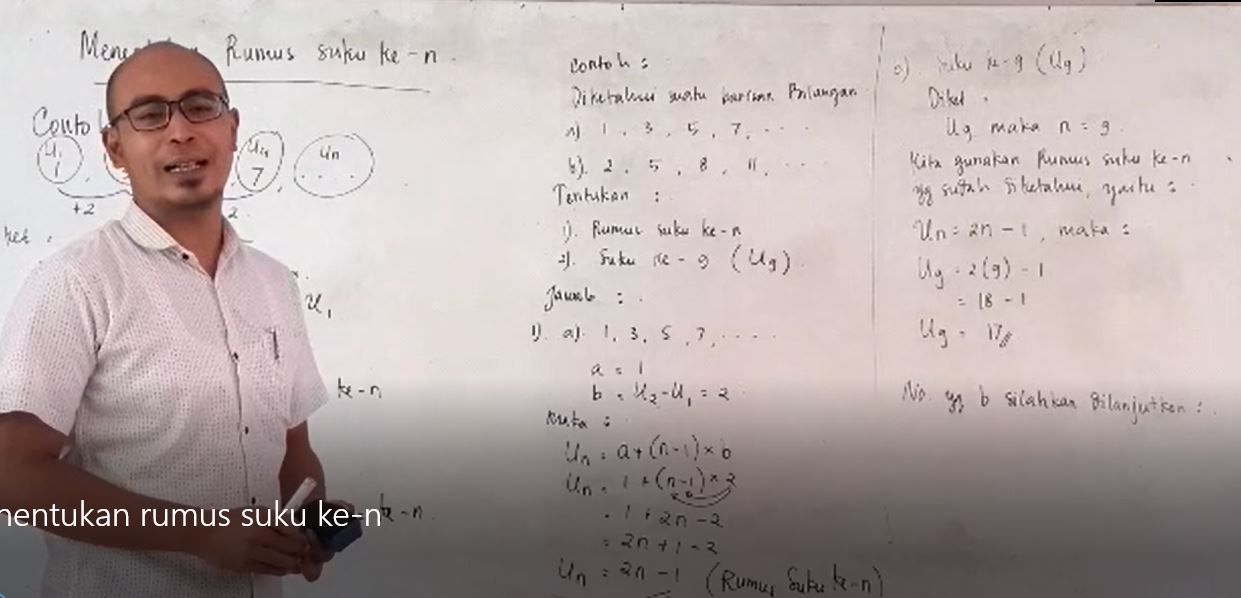 Rumus suku ke-n.
U1 U4 Un
1 , 7 , ....
+2 2
ket .
U1
ke-n
ke-n.
Contoh :
Diketahui suatu barisan Bilangan
a). 1 , 3 , 5 , 7 , ....
b). 2 , 5 , 8 , 11 , ...
Tentukan :
1). Rumus suku ke-n
2). Suku ke-9 (U9)
Jawab :
1). a). 1, 3, 5, 7, ....
a = 1
b = U2-U1 = 2
Maka :
Un = a+(n-1)×b
Un = 1+(n-1)×2
= 1+2n-2
= 2n+1-2
Un = 2n-1 (Rumus Suku ke-n)
Suku ke-9 (U9)
Diket .
U9 maka n = 9.
Kita gunakan Rumus suku ke-n
yg sudah diketahui, yaitu :
Un = 2n-1, maka :
U9 = 2(9)-1
= 18-1
U9 = 17//
No. yg b silahkan dilanjutkan :
nentukan rumus suku ke-n